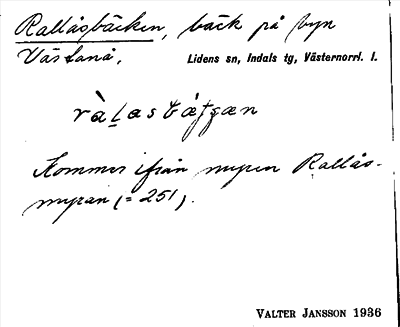 Rallåsbäcken, bäck på byn
Västanå, Lidens sn, Indals tg, Västernorrl. l.
Kommer ifrån myren Rallås-
myran (= 251).
VALTER JANSSON 1936